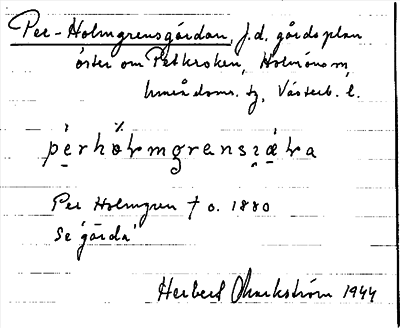 Per-Holmgrensgärdan, f.d. gårdsplan
öster om Petkroken, Holmöns sn,
Umeå doms. tg, Västerb. l.
Per Holmgren † o. 1880
Se 'gärda'
Herbert Markström 1944